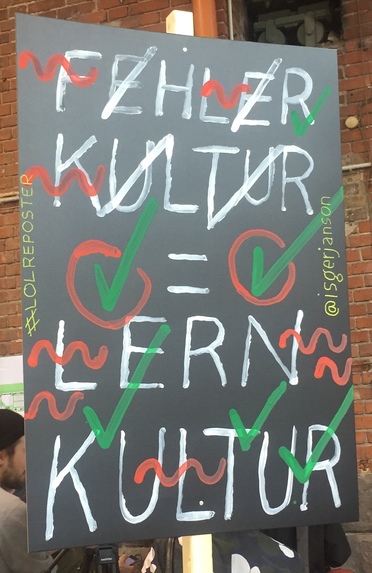 FEHLER
KULTUR
=
LERN
KULTUR
#LOLREPOSTER
@isgerjanson